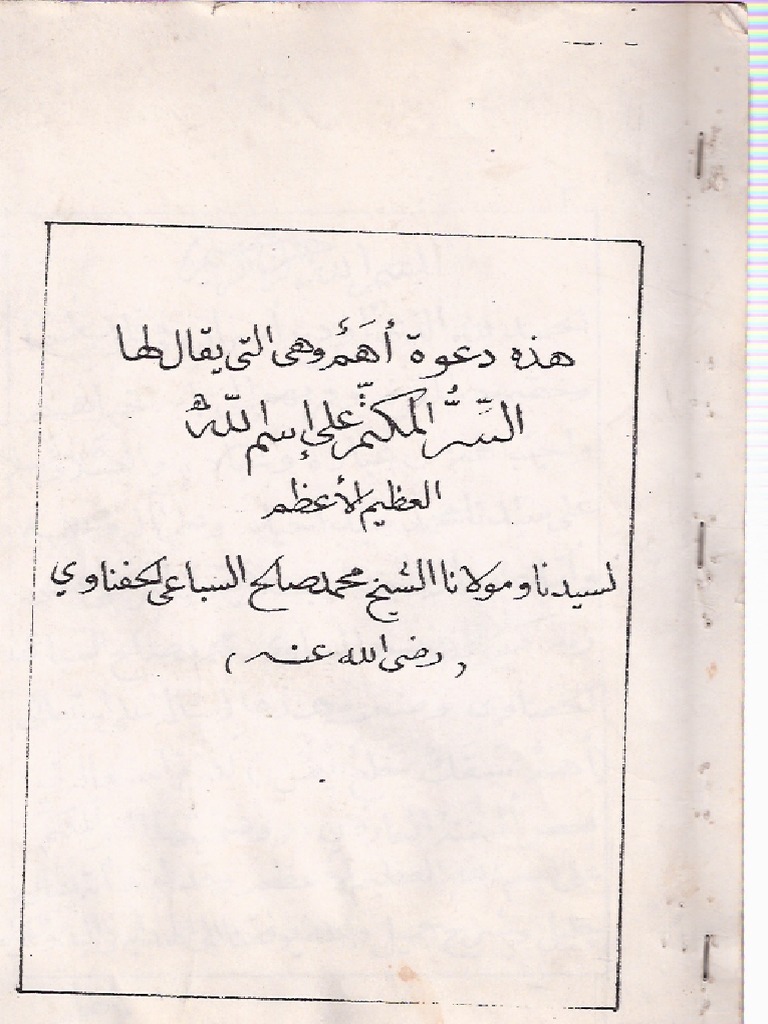 هذه دعوة أَهَمٌ وهى التى يقال لها
السِّرُّ المكتمر على إسم اللّه
العظيم الأعظم
لسيدنا ومولانا الشيخ محمد صالح السباعى الحفناوي
(رضى الله عنه)